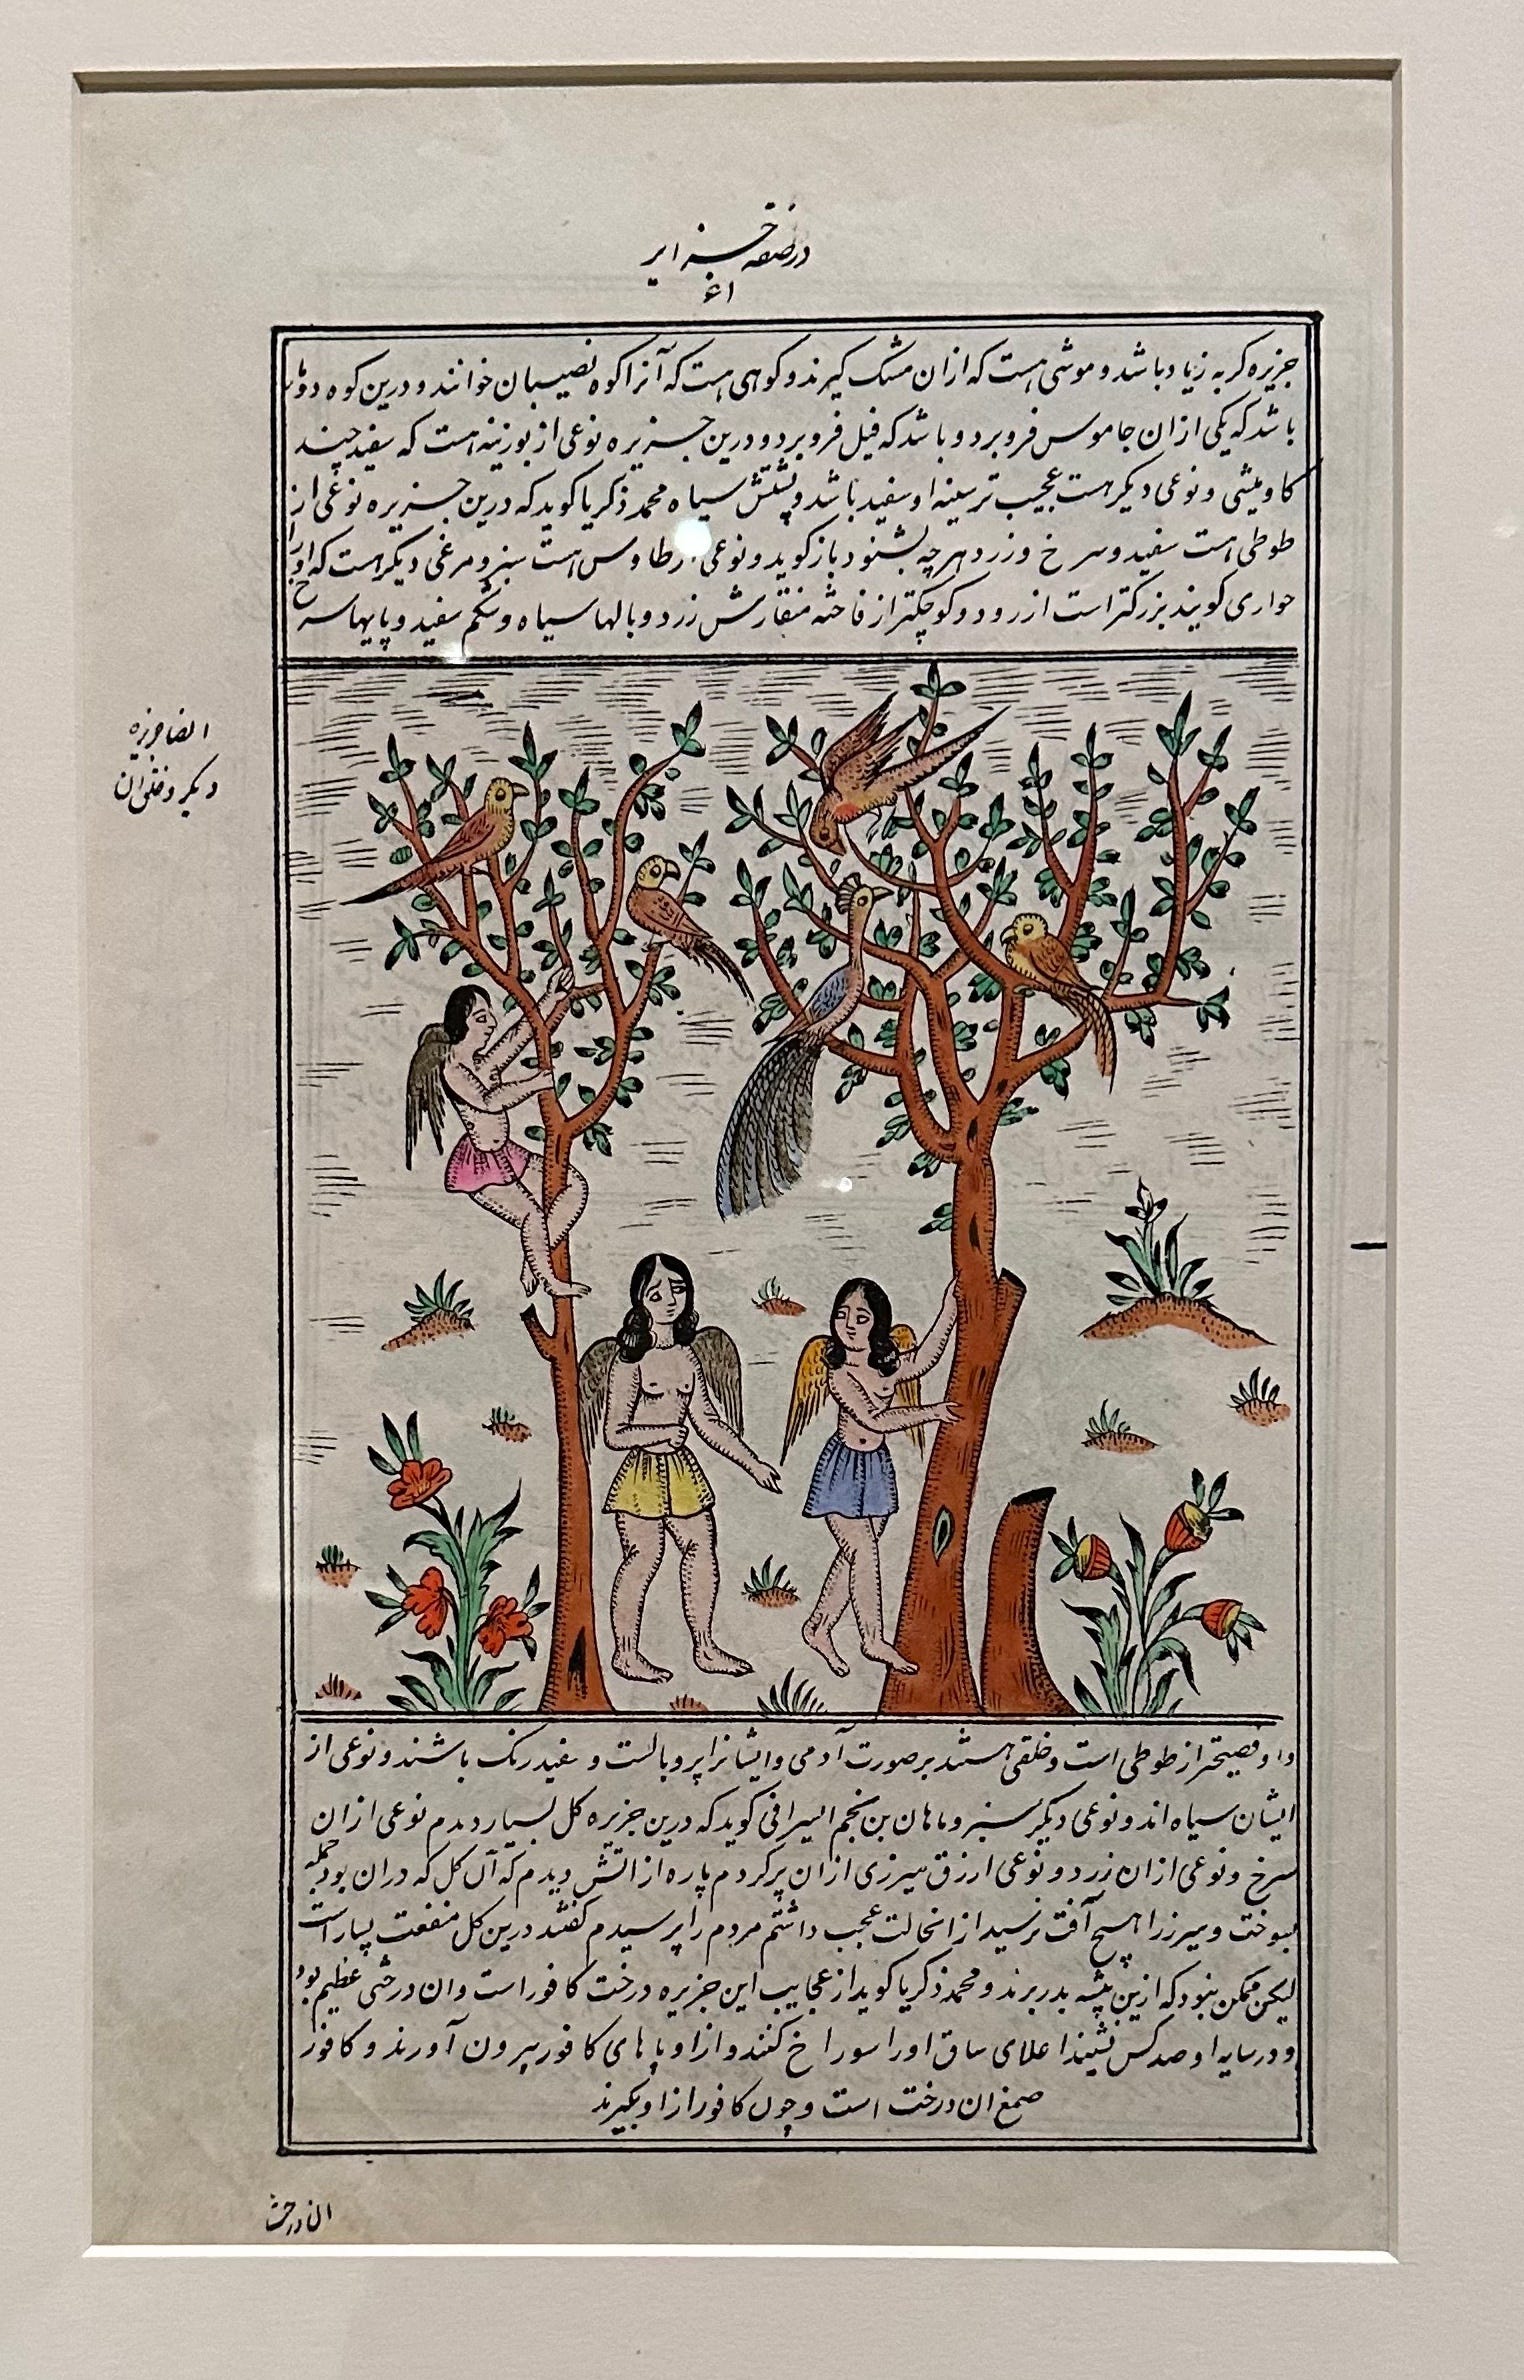 در صفه جزایر
۱۶
جزیره کربه زیاد باشد و موشی است که ازان مشک کیرند و کوهی است که آنرا کوه نصیبان خوانند و درین کوه دوها
باشد که یکی ازان جاموس فرو برد و باشد که فیل فرو برد و درین جزیره نوعی از بوزینه است که سفید چند
کاومیشی و نوعی دیکر است عجیب تر سینه او سفید باشد و پشتش سیاه محمد ذکریا کوید که درین جزیره نوعی از
طوطی است سفید و سرخ و زرد هرچه بشنود باز کوید و نوعی از طاوس است سبز و مرغی دیکر است که او را
حواری کویند بزرکتر است از رود و کوچکتر از فاخته منقارش زرد و بالها سیاه و شکم سفید و پایها سرخ
ایضا جزیره
دیکر و خلق ان
و او فصیحتر از طوطی است و خلقی هستند بر صورت آدمی و ایشانرا پر و بالست و سفید رنک باشند و نوعی از
ایشان سیاه اند و نوعی دیکر سبز و ماهان بن نجم السیرافی کوید که درین جزیره کل بسیار دیدم نوعی ازان
سرخ و نوعی ازان زرد و نوعی ارزق میرزی ازان پر کردم پاره از اتش دیدم که آن کل که دران بود جمله
بسوخت و میرز را هیچ آفت نرسید از انحالت عجب داشتم مردم را پرسیدم کفتند درین کل منفعت بسیار است
لیکن ممکن نبود که ازین بیشه بدر برند و محمد ذکریا کوید از عجایب این جزیره درخت کافور است و ان درختی عظیم بود
و در سایه او صد کس نشیند اعلای ساق او را سوراخ کنند و از او پاهای کافور بیرون آورند و کافور
صمغ ان درخت است و چون کافور از او بکیرند